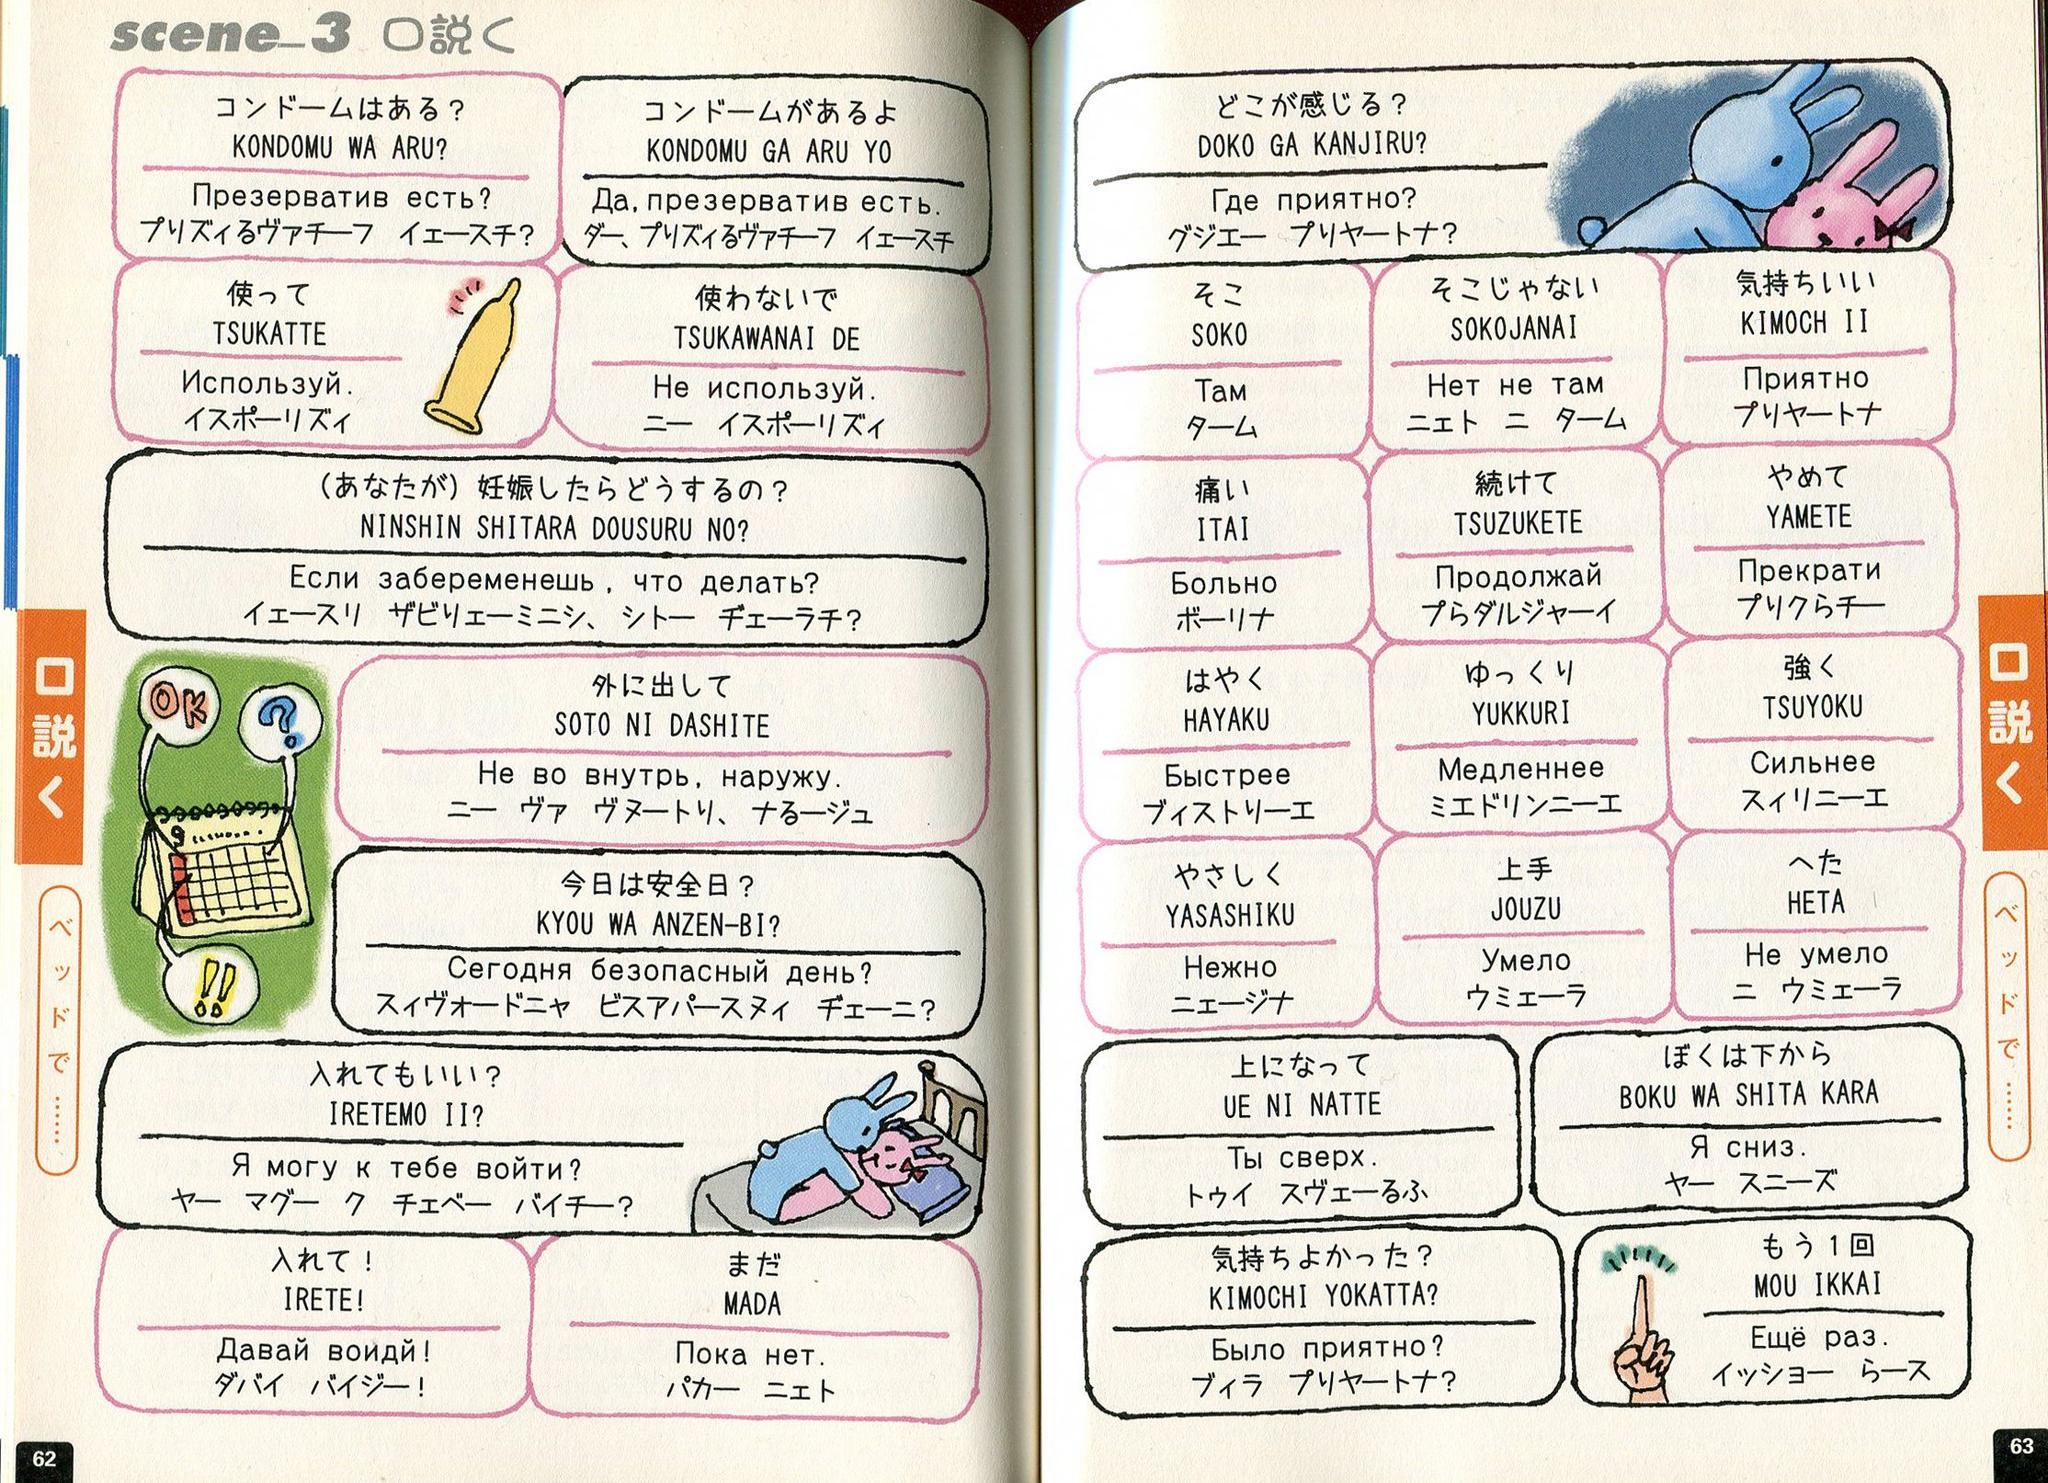 scene_3 口説く
コンドームはある？
KONDOMU WA ARU?
Презерватив есть?
プリズィるヴァチーフ　イェースチ？
コンドームがあるよ
KONDOMU GA ARU YO
Да, презерватив есть.
ダー、プリズィるヴァチーフ　イェースチ
使って
TSUKATTE
Используй.
イスポーリズィ
使わないで
TSUKAWANAI DE
Не используй.
ニー　イスポーリズィ
（あなたが）妊娠したらどうするの？
NINSHIN SHITARA DOUSURU NO?
Если забеременешь, что делать?
イェースリ　ザビりェーミニシ、シトー　ヂェーラチ？
OK
?
9
!!
外に出して
SOTO NI DASHITE
Не во внутрь, наружу.
ニー　ヴァ　ヴヌートり、ナるージュ
今日は安全日？
KYOU WA ANZEN-BI?
Сегодня безопасный день?
スィヴォードニャ　ビスアパースヌィ　ヂェーニ？
入れてもいい？
IRETEMO II?
Я могу к тебе войти?
ヤー　マグー　ク　チェベー　バイチー？
入れて！
IRETE!
Давай воидй!
ダバイ　バイジー！
まだ
MADA
Пока нет.
パカー　ニェト
口説く
ベッドで……
62
どこが感じる？
DOKO GA KANJIRU?
Где приятно?
グジエー　プリヤートナ？
そこ
SOKO
Там
ターム
そこじゃない
SOKOJANAI
Нет не там
ニェト　ニ　ターム
気持ちいい
KIMOCH II
Приятно
プリヤートナ
痛い
ITAI
Больно
ボーリナ
続けて
TSUZUKETE
Продолжай
プらダルジャーイ
やめて
YAMETE
Прекрати
プリクらチー
はやく
HAYAKU
Быстрее
ブィストりーエ
ゆっくり
YUKKURI
Медленнее
ミエドリンニーエ
強く
TSUYOKU
Сильнее
スィリニーエ
やさしく
YASASHIKU
Нежно
ニェージナ
上手
JOUZU
Умело
ウミェーラ
へた
HETA
Не умело
ニ　ウミェーラ
上になって
UE NI NATTE
Ты сверх.
トゥイ　スヴェーるふ
ぼくは下から
BOKU WA SHITA KARA
Я сниз.
ヤー　スニーズ
気持ちよかった？
KIMOCHI YOKATTA?
Было приятно?
ブィラ　プリヤートナ？
もう１回
MOU IKKAI
Ещё раз.
イッショー　らース
口説く
ベッドで……
63